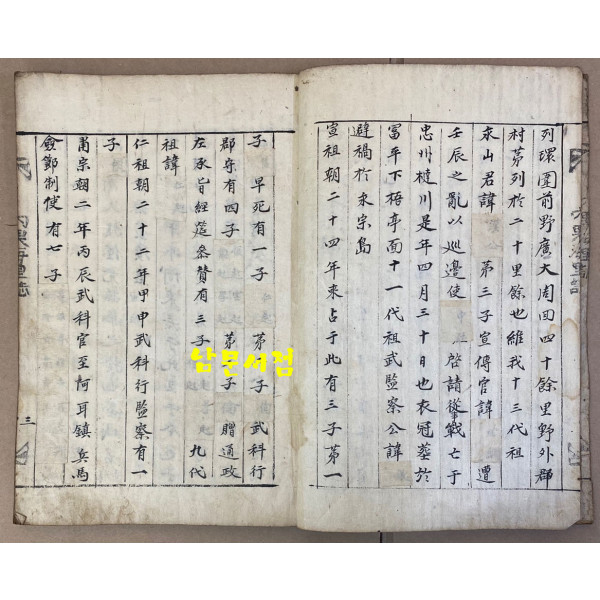 列環圍前野廣大周回四十餘里野外郡
村苐列於二十里餘也維我十三代祖
永山君諱 苐三子宣傳官諱 遭
壬辰之亂以巡邊使 啓請從戰亡于
忠州㺚川是年四月三十日也衣冠葬於
富平下梧亭面十一代祖武監察公諱
避禍於永宗島
宣祖朝二十四年來占于此有三子苐一
子 早死有一子 苐 子 武科行
郡守有四子 苐 子 贈通政
左承旨經筵參贊有三子 九代
祖諱
仁祖朝二十二年甲申武科行監察有一
子
肅宗朝二年丙辰武科官至阿耳鎮兵馬
僉節制使有七子
三
남문서점